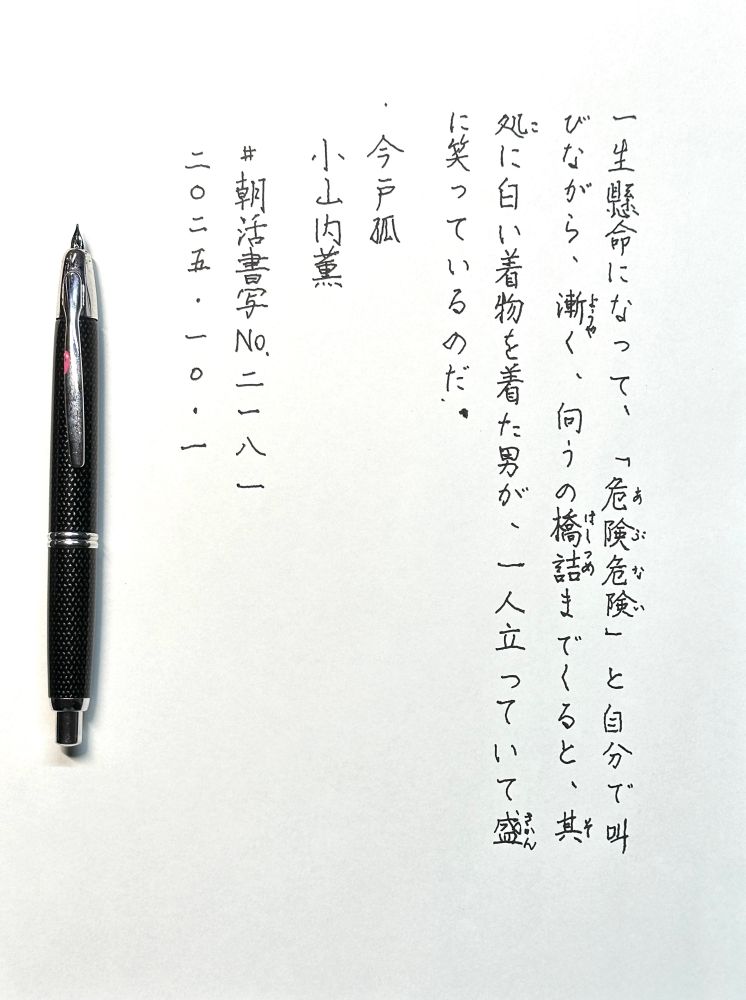 一生懸命になって、「危険危険」と自分で叫
びながら、漸く、向うの橋詰までくると、其
処に白い着物を着た男が、一人立っていて盛
に笑っているのだ。
今戸狐
小山内薫
#朝活書写No.二一八一
二〇二五・一〇・一